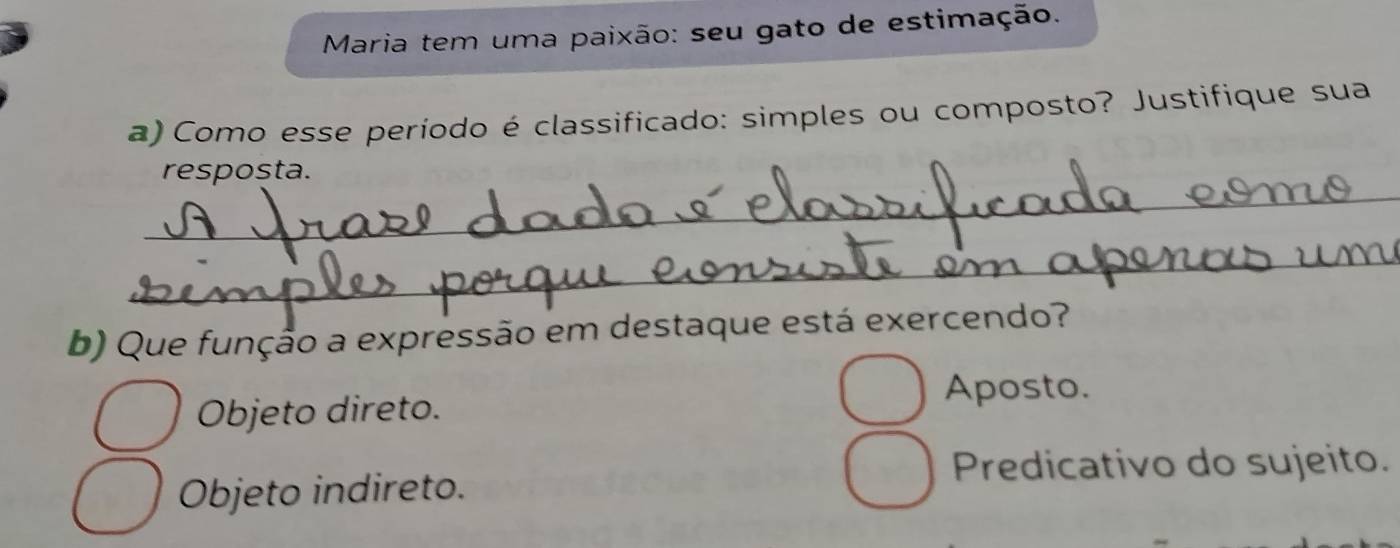 Maria tem uma paixão: seu gato de estimação.
a) Como esse período é classificado: simples ou composto? Justifique sua
resposta.
A frase dada é classificada como
simples porque consiste em apenas um
b) Que função a expressão em destaque está exercendo?
Objeto direto.
Aposto.
Objeto indireto.
Predicativo do sujeito.